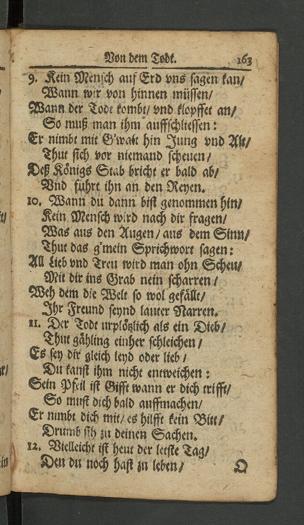 Von dem Todt. 163
9. Kein Mensch auf Erd vns sagen kan/
Wann wir von hinnen müssen/
Wann der Todt kombt/ vnd klopffet an/
So muß man ihm auffschliessen:
Er nimbt mit G'walt hin Jung vnd Alt/
Thut sich vor niemand scheuen/
Deß Königs Stab bricht er bald ab/
Vnd führt ihn an den Reyen.
10. Wann du dann bist genommen hin/
Kein Mensch wird nach dir fragen/
Was aus den Augen/ aus dem Sinn/
Thut das g'mein Sprichwort sagen:
All Lieb vnd Treu wird man ohn Scheu/
Mit dir ins Grab nein scharren/
Weh dem die Welt so wol gefällt/
Ihr Freund seynd lauter Narren.
11. Der Todt urplötzlich als ein Dieb/
Thut gähling einher schleichen/
Es sey dir gleich leyd oder lieb/
Du kanst ihm nicht entweichen:
Sein Pfeil ist Gifft wann er dich trifft/
So must dich bald auffmachen/
Er nimbt dich mit/ es hilfft kein Bitt/
Drumb sih zu deinen Sachen.
12. Vielleicht ist heut der letste Tag/
Den du noch hast zu leben/